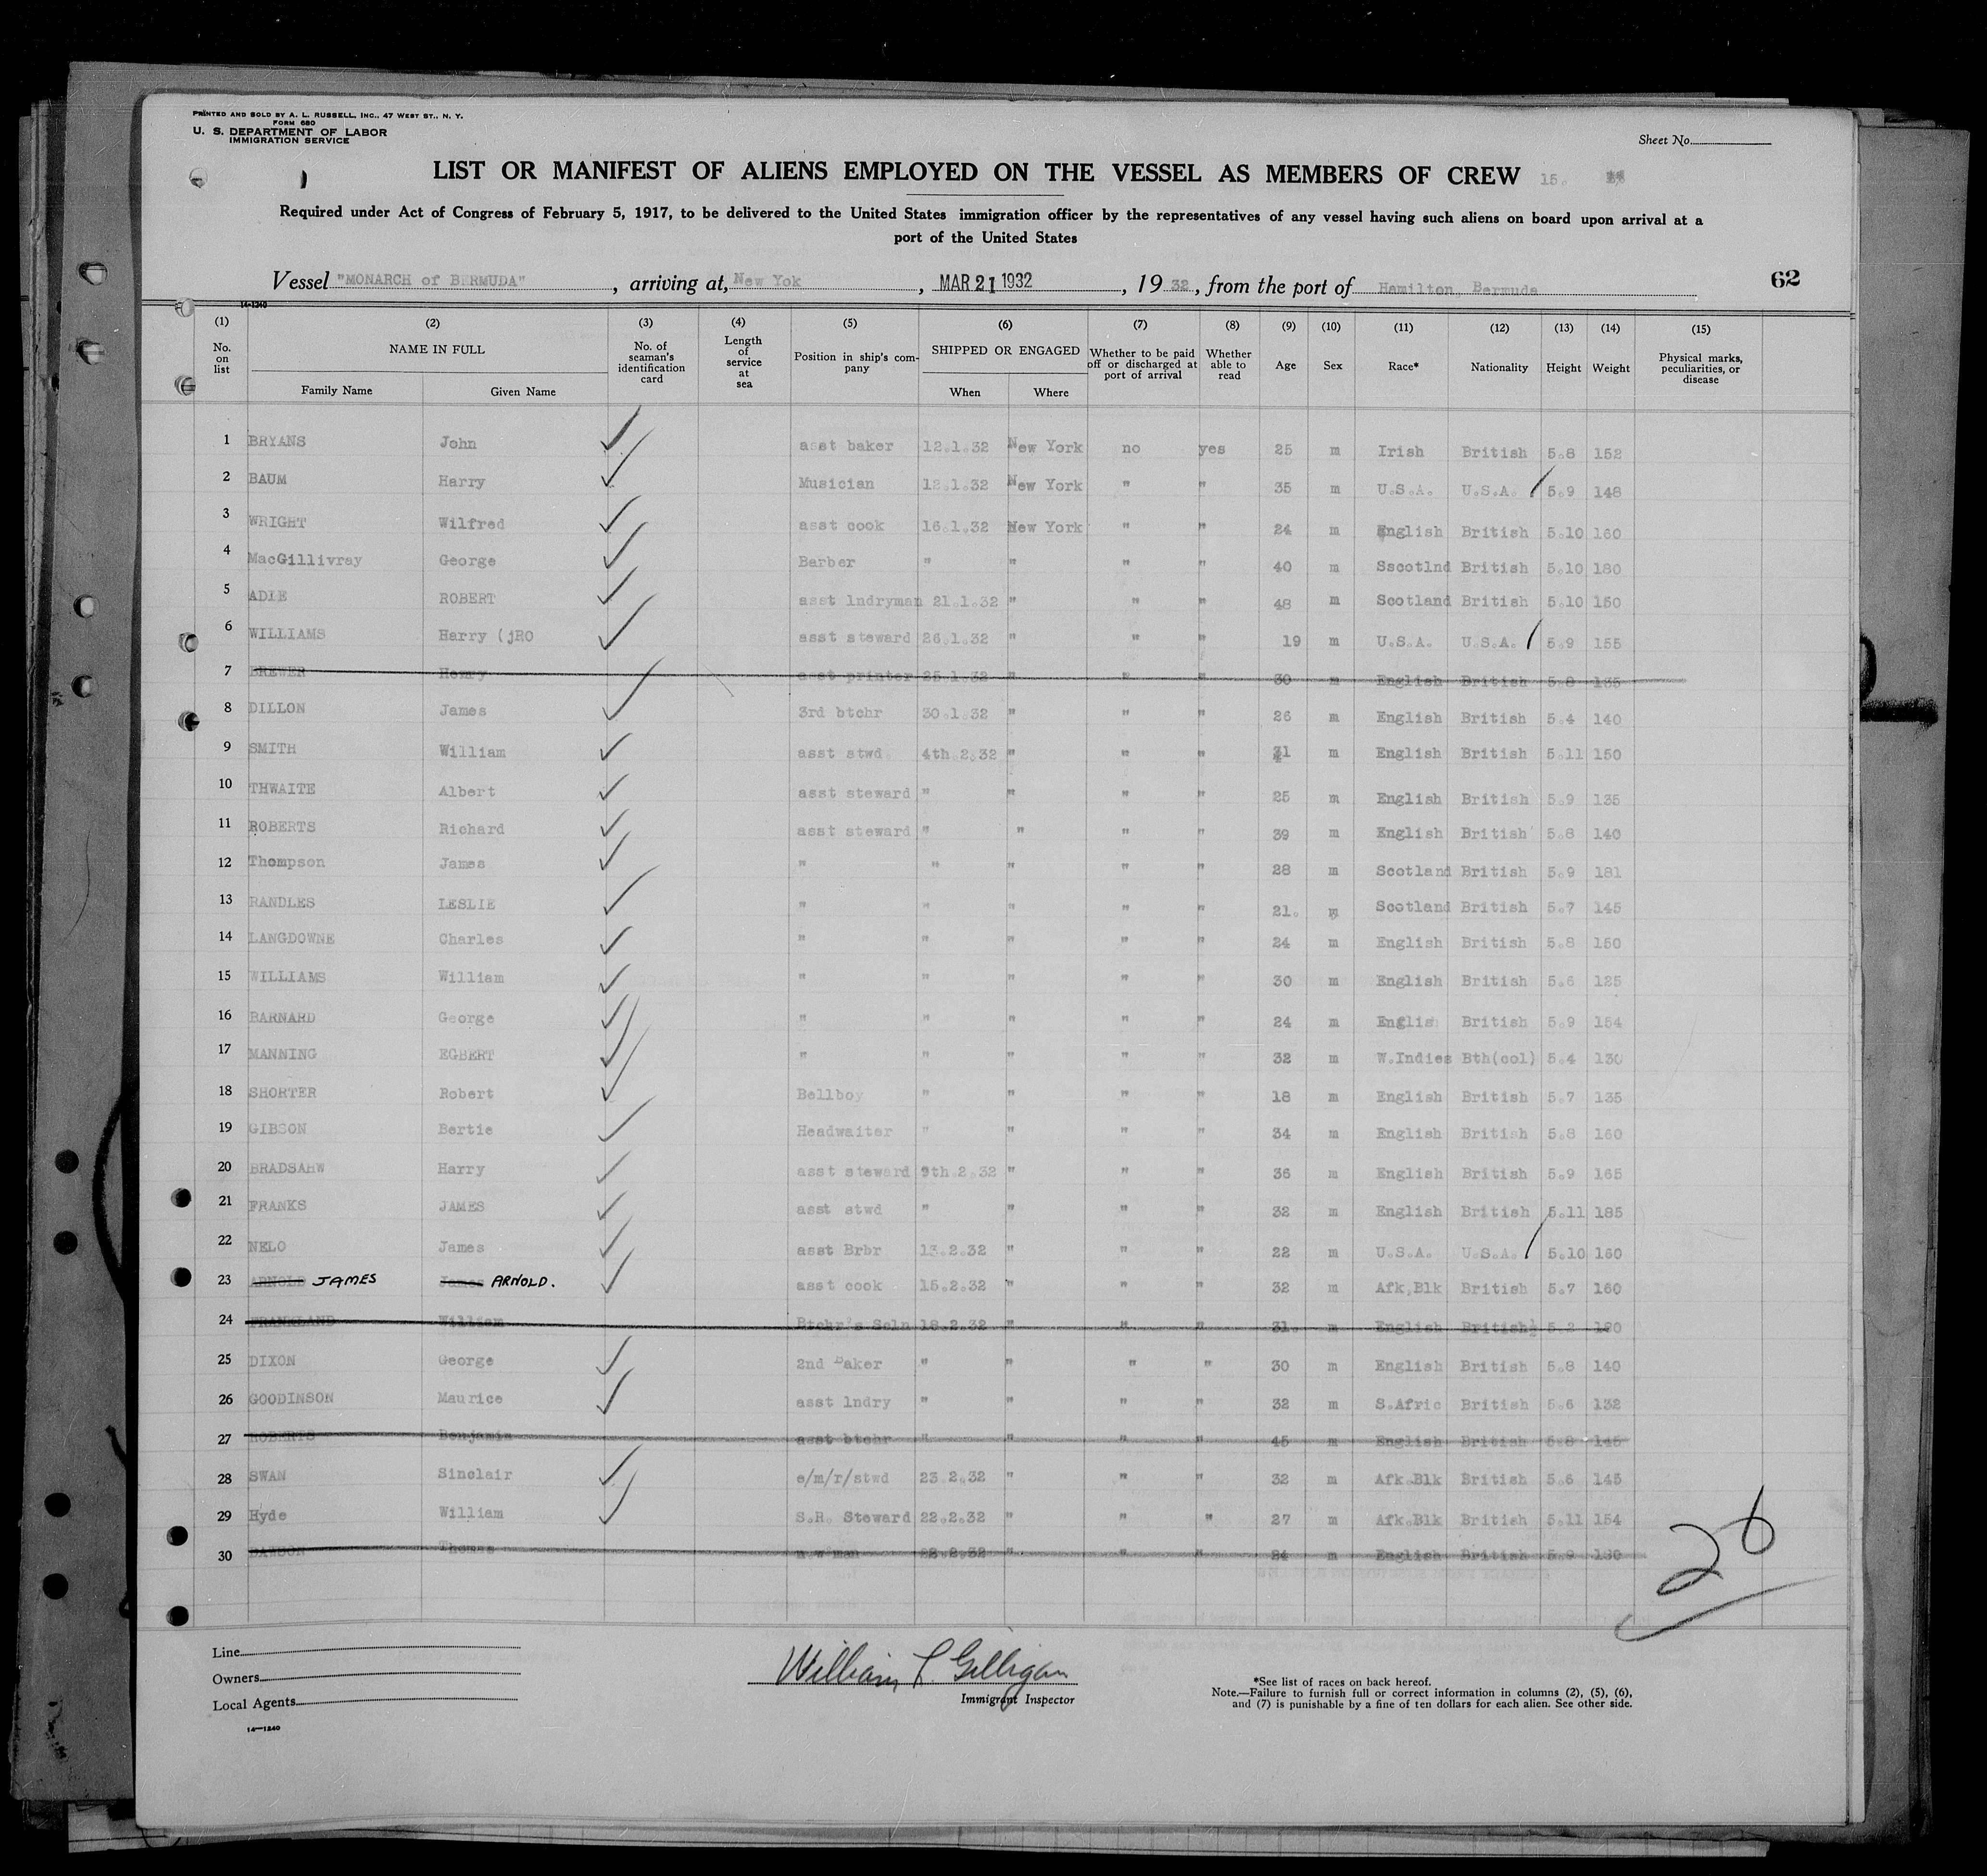 PRINTED AND SOLD BY A. L. RUSSELL, INC., 47 WEST ST., N. Y.
FORM 680
U. S. DEPARTMENT OF LABOR
IMMIGRATION SERVICE
Sheet No.
LIST OR MANIFEST OF ALIENS EMPLOYED ON THE VESSEL AS MEMBERS OF CREW 15.
Required under Act of Congress of February 5, 1917, to be delivered to the United States immigration officer by the representatives of any vessel having such aliens on board upon arrival at a
port of the United States
Vessel "MONARCH of BERMUDA", arriving at, New Yok, MAR 21 1932, 19 32, from the port of Hamilton, Bermuda 62
14-1240
(1) (2) (3) (4) (5) (6) (7) (8) (9) (10) (11) (12) (13) (14) (15)
No. on list NAME IN FULL Family Name Given Name No. of seaman's identification card Length of service at sea Position in ship's company SHIPPED OR ENGAGED When Where Whether to be paid off or discharged at port of arrival Whether able to read Age Sex Race* Nationality Height Weight Physical marks, peculiarities, or disease
1 BRYANS John asst baker 12.1.32 New York no yes 25 m Irish British 5.8 152
2 BAUM Harry Musician 12.1.32 New York " " 35 m U.S.A. U.S.A. 5.9 148
3 WRIGHT Wilfred asst cook 16.1.32 New York " " 24 m English British 5.10 160
4 MacGillivray George Barber " " " " 40 m Sscotlnd British 5.10 180
5 ADIE ROBERT asst lndryman 21.1.32 " " " 48 m Scotland British 5.10 150
6 WILLIAMS Harry (jRO asst steward 26.1.32 " " " 19 m U.S.A. U.S.A. 5.9 155
7 BREWER Henry asst printer 25.1.32 " " " 30 m English British 5.8 135
8 DILLON James 3rd btchr 30.1.32 " " " 26 m English British 5.4 140
9 SMITH William asst stwd. 4th.2.32 " " " 31 m English British 5.11 150
10 THWAITE Albert asst steward " " " " 25 m English British 5.9 135
11 ROBERTS Richard asst steward " " " " 39 m English British 5.8 140
12 Thompson James " " " " " 28 m Scotland British 5.9 181
13 RANDLES LESLIE " " " " " 21. m Scotland British 5.7 145
14 LANGDOWNE Charles " " " " " 24 m English British 5.8 150
15 WILLIAMS William " " " " " 30 m English British 5.6 125
16 BARNARD George " " " " " 24 m Englis British 5.9 154
17 MANNING EGBERT " " " " " 32 m W.Indies Bth(col) 5.4 130
18 SHORTER Robert Bellboy " " " " 18 m English British 5.7 135
19 GIBSON Bertie Headwaiter " " " " 34 m English British 5.8 160
20 BRADSAHW Harry asst steward 9th.2.32 " " " 36 m English British 5.9 165
21 FRANKS JAMES asst stwd " " " " 32 m English British 5.11 185
22 NELO James asst Brbr 13.2.32 " " " 22 m U.S.A. U.S.A. 5.10 160
23 ARNOLD JAMES James ARNOLD. asst cook 15.2.32 " " " 32 m Afk,Blk British 5.7 160
24 FRANKLAND William Btchr's Scln 18.2.32 " " " 31. m English British 5.2 180
25 DIXON George 2nd Baker " " " " 30 m English British 5.8 140
26 GOODINSON Maurice asst lndry " " " " 32 m S.Afric British 5.6 132
27 ROBERTS Benjamin asst btchr " " " " 45 m English British 5.8 145
28 SWAN Sinclair e/m/r/stwd 23.2.32 " " " 32 m Afk.Blk British 5.6 145
29 Hyde William S.R. Steward 22.2.32 " " " 27 m Afk.Blk British 5.11 154
30 Thomas 22.2.32 " " " 24 m English British 5.9
26
Line
Owners
Local Agents
14—1240
William L Gilligan
Immigrant Inspector
*See list of races on back hereof.
Note.—Failure to furnish full or correct information in columns (2), (5), (6),
and (7) is punishable by a fine of ten dollars for each alien. See other side.